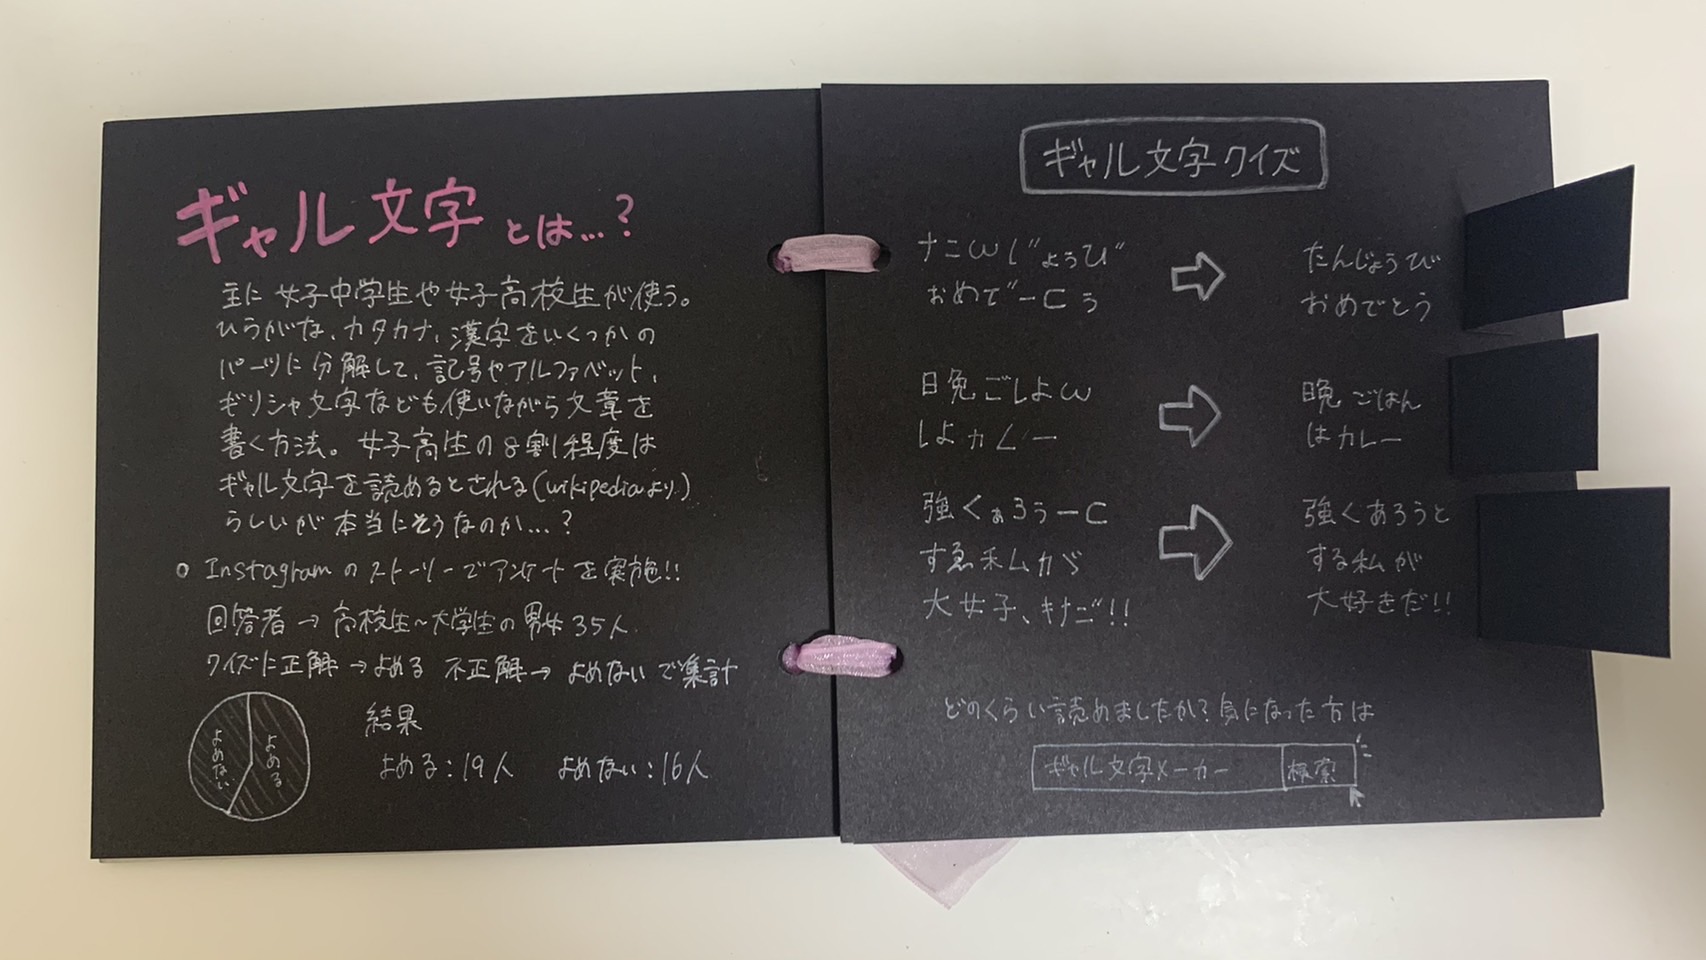 ギャル文字とは…?
主に女子中学生や女子高校生が使う。
ひらがな、カタカナ、漢字をいくつかの
パーツに分解して、記号やアルファベット、
ギリシャ文字なども使いながら文章を
書く方法。女子高生の8割程度は
ギャル文字を読めるとされる(wikipediaより)
らしいが本当にそうなのか…?
○ Instagramのストーリーでアンケートを実施!!
回答者→高校生~大学生の男女35人
クイズに正解→よめる 不正解→よめないで集計
よめない よめる
結果
よめる:19人 よめない:16人
ギャル文字クイズ
ナニωι゛ょぅひ゛
ぉめて゛ーCぅ
たんじょうび
おめでとう
日免ごしよω
しよカㄥー
晩ごはん
はカレー
強くぁろぅーC
すゑ禾ムカヾ
大女子、キナご!!
強くあろうと
する私が
大好きだ!!
どのくらい読めましたか?気になった方は
ギャル文字メーカー 検索